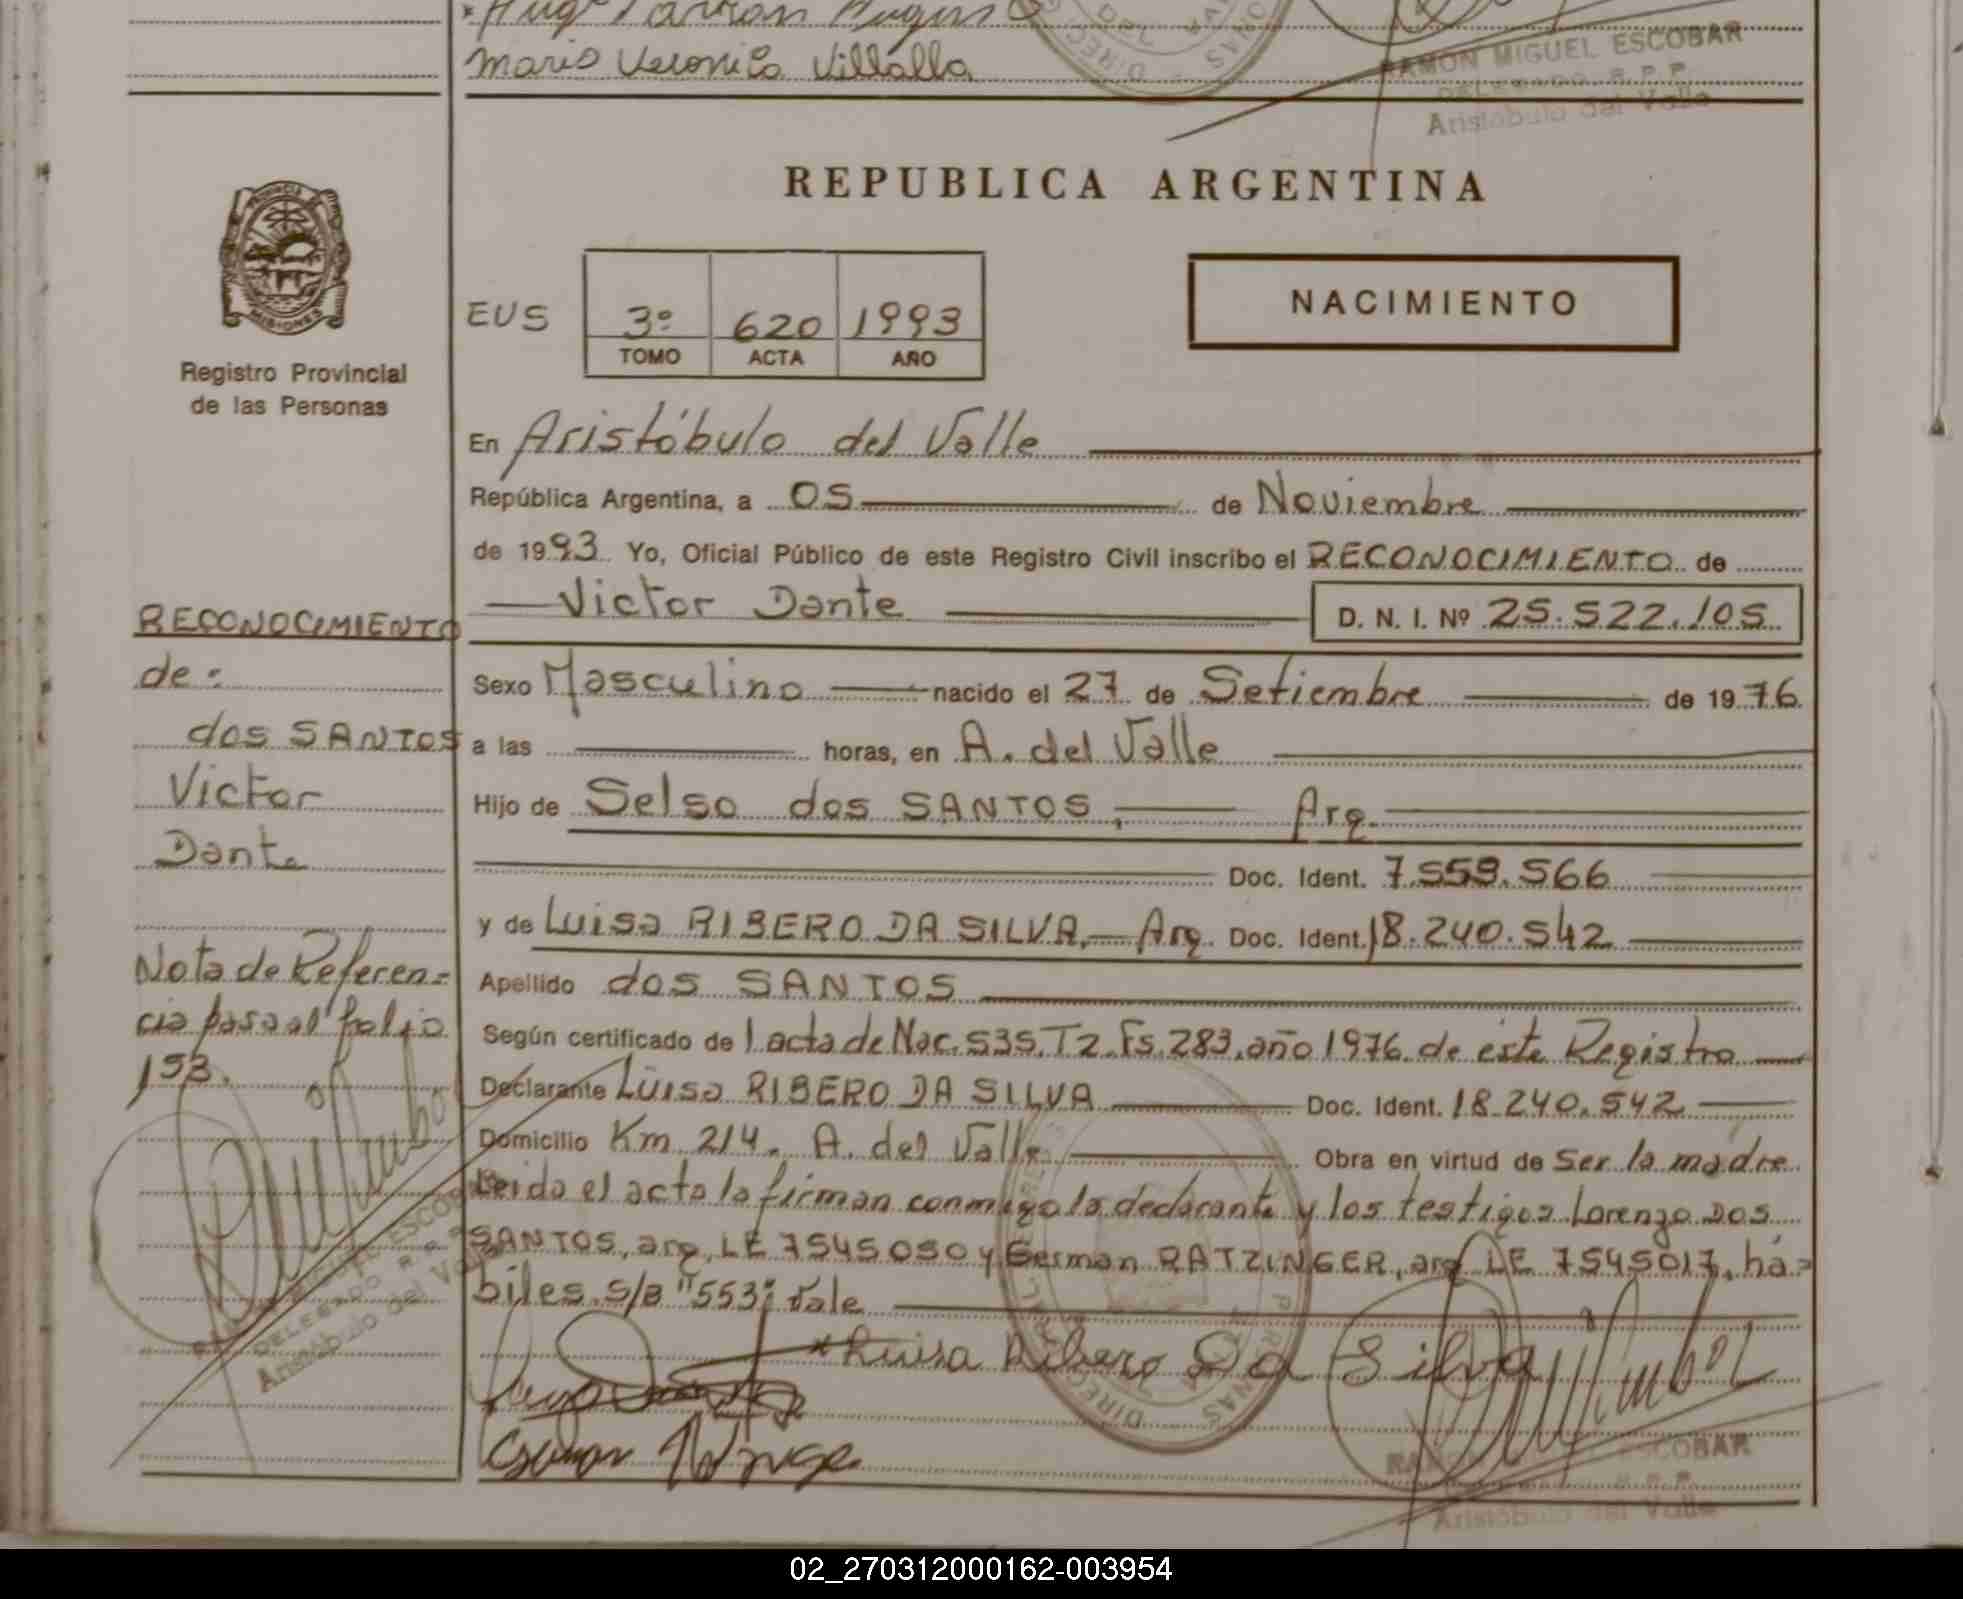 Maria Veronica Villalba
RAMON MIGUEL ESCOBAR
DELEGADO R.P.P.
Aristóbulo del Valle
REPUBLICA ARGENTINA
PROVINCIA
MISIONES
Registro Provincial
de las Personas
EUS 3º 620 1993
TOMO ACTA AÑO
NACIMIENTO
En Aristóbulo del Valle
República Argentina, a 05 de Noviembre
de 1993 Yo, Oficial Público de este Registro Civil inscribo el RECONOCIMIENTO de
Victor Dante D. N. I. Nº 25.522.105
Sexo Masculino nacido el 27 de Setiembre de 1976
a las horas, en A. del Valle
Hijo de Selso dos SANTOS, Arg.
Doc. Ident. 7.559.566
y de Luisa RIBERO DA SILVA, Arg. Doc. Ident. 18.240.542
Apellido dos SANTOS
Según certificado de 1 acta de Nac. 535. T2. Fs. 283. año 1976. de este Registro
Declarante Luisa RIBERO DA SILVA Doc. Ident. 18.240.542
Domicilio Km 214. A. del Valle Obra en virtud de Ser la madre
Leida el acta la firman conmigo la declarante y los testigos Lorenzo DOS
SANTOS, arg. LE 7545050 y German RATZINGER, arg LE 7545017, há=
biles. S/B "553" Vale
RECONOCIMIENTO
de:
dos SANTOS
Victor
Dante
Nota de Referen=
cia pasa al folio
153.
ESCOBAR
DELEGADO R.P.P.
Aristóbulo del Valle
Luisa Ribero Da Silva
ESCOBAR
R.P.P.
Aristóbulo del Valle
02_270312000162-003954